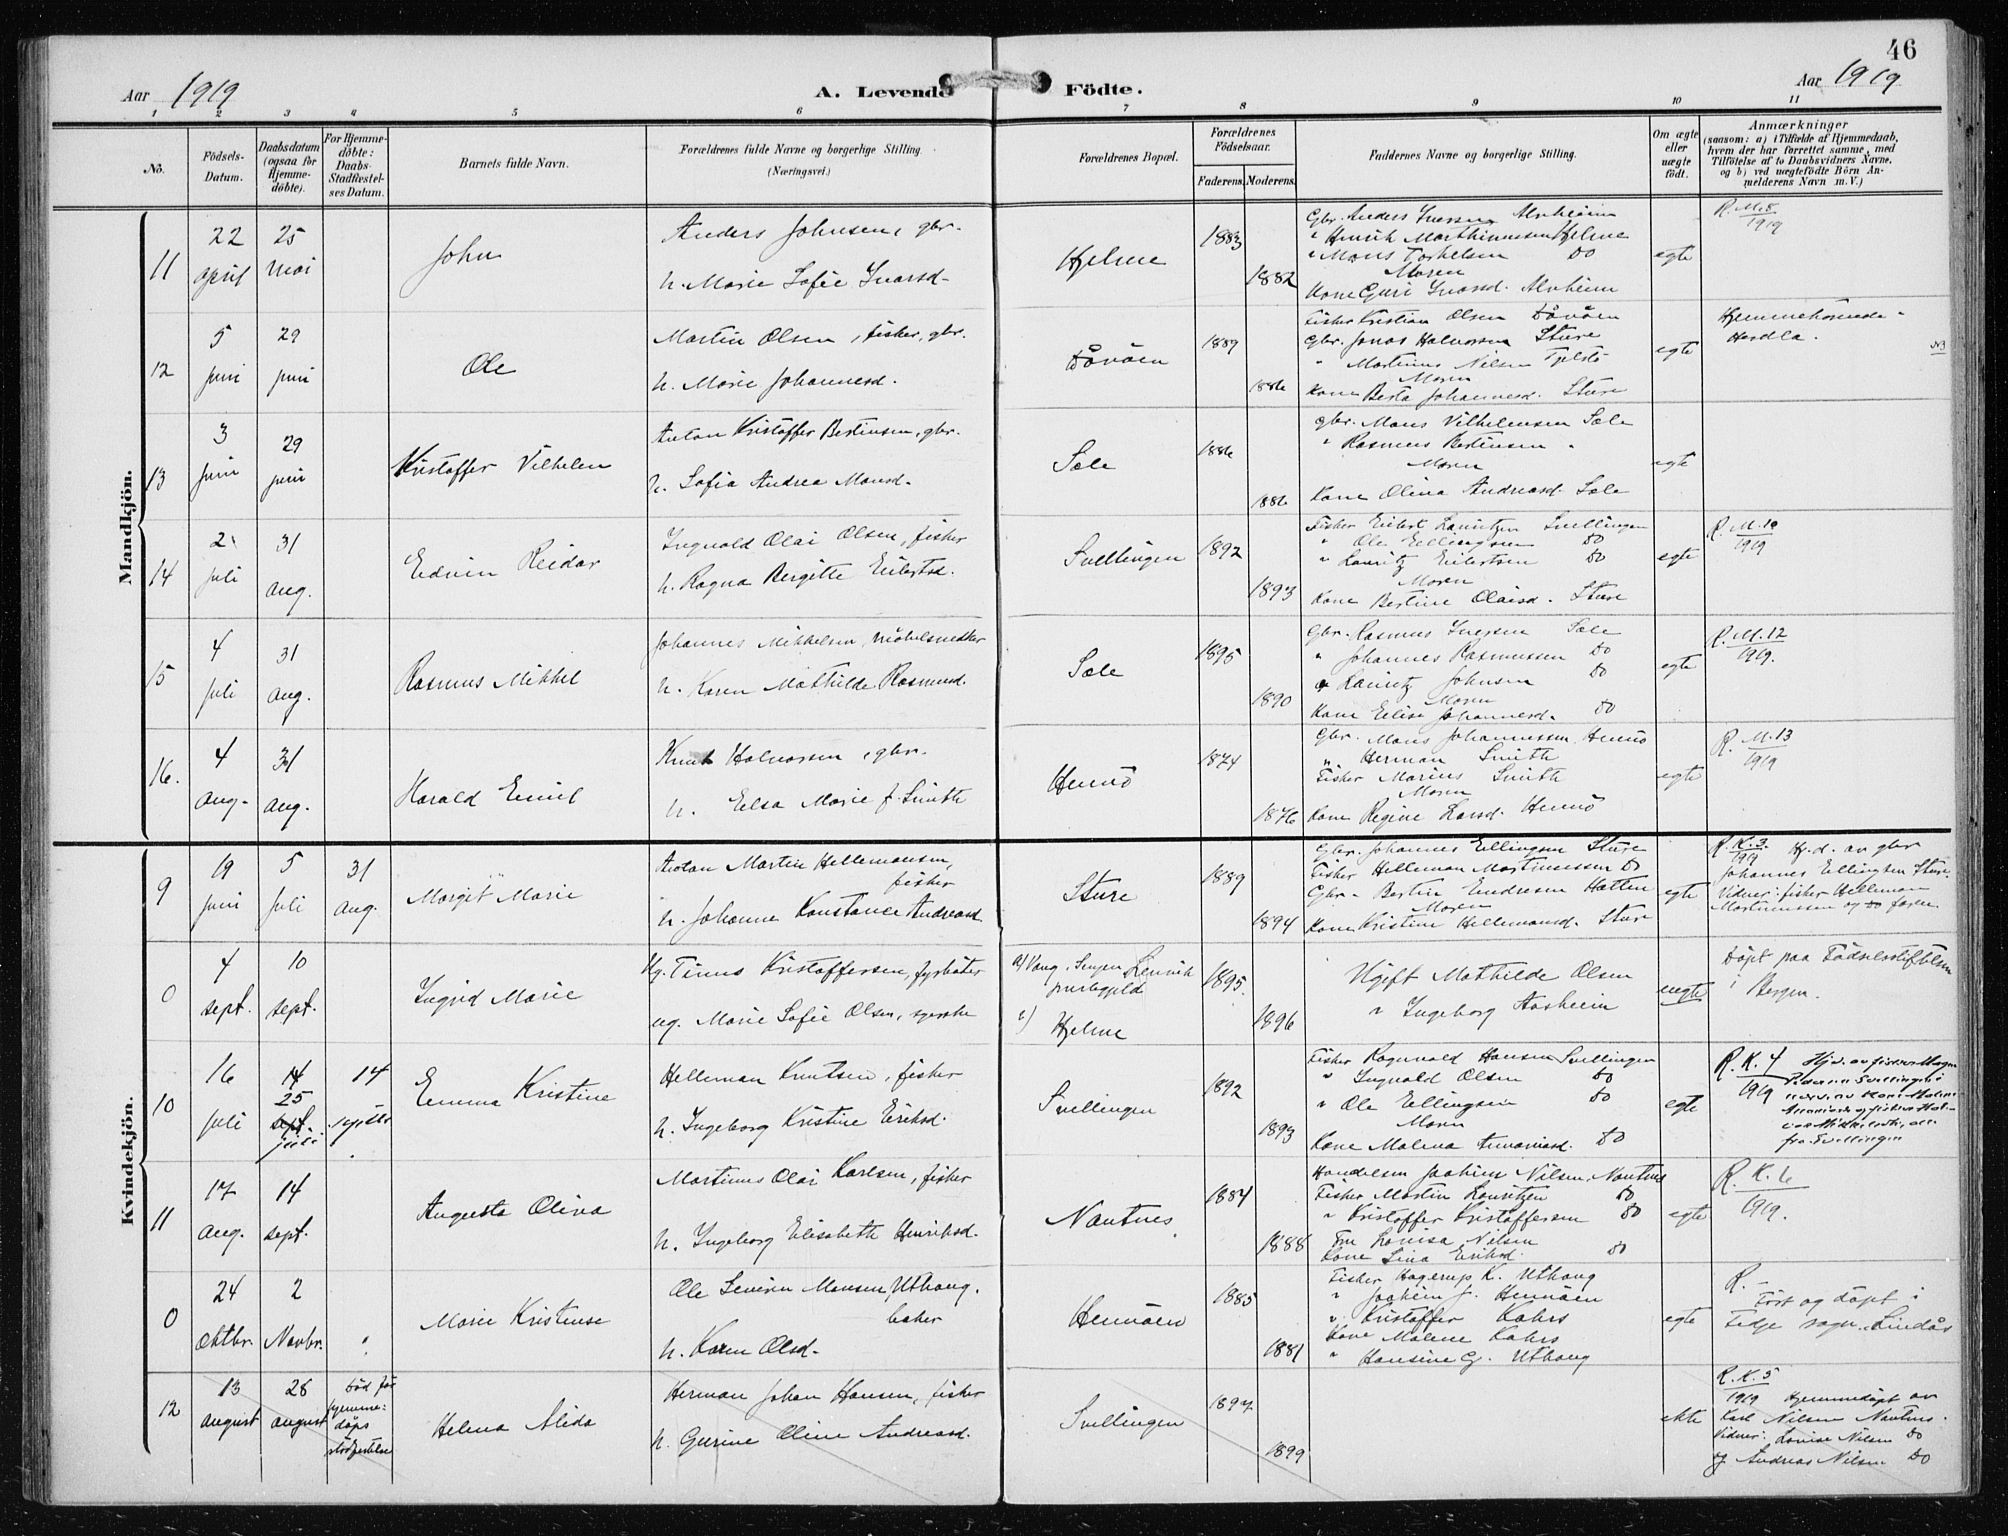 46
Aar 1919
A. Levende Födte.
Aar 1919
1 2 3 4 5 6 7 8 9 10 11
No.
Födsels-
Datum.
Daabsdatum
(ogsaa for
Hjemme-
döbte).
For Hjemme-
döbte:
Daabs-
Stadfæstel-
ses Datum.
Barnets fulde Navn.
Forældrenes fulde Navne og borgerlige Stilling.
(Næringsvei.)
Forældrenes Bopæl.
Forældrenes
Födselsaar.
Faderens. Moderens.
Faddernes Navne og borgerlige Stilling.
Om ægte
eller
uægte
födt.
Anmærkninger
(saasom: a) i Tilfælde af Hjemmedaab,
hvem der har forrettet samme, med
Tilföielse af to Daabsvidners Navne,
og b) ved uægtefödte Börn An-
melderens Navn m. V.)
Mandkjön.
11
22
april
25
mai
John
Anders Johnsen, gbr.
h. Marie Sofie Ivarsd.
Hjelme
1883
1882
Gbr. Anders Iversen Alvheim
" Henrik Marthinussen Hjelme
" Mons Torkelsen Do
Moren
Kone Guri Ivarsd. Alvheim
egte
R. M. 8
1919
12
5
juni
29
juni
Ole
Martin Olsen, fisker, gbr.
h. Marie Johannesd.
Dåvöen
1889
1886
Fisker Kristian Olsen Dåvöen
Gbr. Jonas Halvorsen Sture
" Martinus Nilsen Tjeldstö
Moren
Kone Berta Johannesd. Sture
egte
Hjemmehörende
Herdla.
13
3
juni
29
juni
Kristoffer Vilhelm
Anton Kristoffer Bertinsen, gbr.
h. Sofia Andrea Monsd.
Sæle
1886
1886
gbr. Mons Vilhelmsen Sæle
" Rasmus Bertinsen "
Moren
Kone Olina Andreasd. Sæle
egte
14
2
juli
31
aug.
Edvin Reidar
Ingvald Olai Olsen, fisker
h. Ragna Bergitte Eilertsd.
Svellingen
1892
1893
Fisker Eilert Lauritzen Svellingen
" Ole Ellingsen Do
" Lauritz Eilertsen Do
Moren
Kone Bertine Olaisd. Sture
egte
R. M. 10
1919
15
4
juli
31
aug.
Rasmus Mikkel
Johannes Mikkelsen, möbelsnedker
h. Karen Mathilde Rasmusd.
Sæle
1895
1890
Gbr. Rasmus Iversen Sæle
" Johannes Rasmussen Do
" Lauritz Johnsen Do
Moren
Kone Elise Johannesd. Do
egte
R. M. 12
1919.
16.
4
aug.
31
aug.
Harald Emil
Knut Halvorsen, gbr.
h. Elsa Marie f. Smith
Hernö
1874
1876
Gbr. Mons Johannessen Hernö
" Herman Smith
Fisker Marius Smith
Moren
Kone Regine Larsd. Hernö
egte
R. M. 13
1919
Kvindekjön.
9
19
juni
5
Juli
31
aug.
Margit Marie
Anton Martin Hellemansen,
fisker
h. Johanne Konstance Andreasd.
Sture
1889
1894
Gbr. Johannes Ellingsen Sture
Fisker Helleman Martinussen Do
Gbr. Bertin Endresen Hatten
Moren
Kone Kristine Hellemansd. Sture
egte
R. K. 3.
1919 Hj.d. av gbr
Johannes Ellingsen Sture.
Vidner: fisker Helleman
Martinussen og do faren.
0
4
sept.
10
sept.
Ingrid Marie
Ug. Tinus Kristoffersen, fyrböter
ug. Marie Sofie Olsen, syerske
a) Vang, Senjen Lenvik
prestegjeld
b) Hjelme
1895.
1896
Ugift Mathilde Olsen
" Ingeborg Aasheim
uegte
Döpt paa Födselsstiftelsen
i Bergen.
10
16
juli
14
25
sept.
juli
14
septbr
.
Emma Kristine
Helleman Knutsen, fisker
h. Ingeborg Kristine Eriksd.
Svellingen
1892
1893
Fisker Ragnvald Hansen Svellingen
" Ingvald Olsen Do
" Ole Ellingsen Do
Moren
Kone Malena Ananiasd. Do
egte
R. K. 4
1919
fra Svellingen
11
17
aug.
14
sept.
Augusta Olina
Martinus Olai Karlsen, fisker
h. Ingeborg Elisabeth Henriksd.
Nautnes
1884
1888
Handelsm Joakim Nilsen, Nautnes
Fisker Martin Lauritzen Do
" Kristoffer Kristoffersen Do
Fru Lovisa Nilsen
Kone Lina Eriksd. Do
egte
R. K. 6
1919.
0
24
oktbr.
2
Novbr.
Marie Kristense
Ole Severin Monsen Uthaug.
baker
h. Karen Olsd.
Hernöen
1885
1881
Fisker Hagerup K. Uthaug
" Joakim J. Hernöen
" Kristoffer Kahrs
Kone Malene Kahrs
" Hansine G. Uthaug
egte
R. —
Föst og döpt i
Fedje sogn. Lindås
12
13
august
28
august
Död för
hjemme-
dåps
stadfestelse
Helena Alida
Herman Johan Hansen, fisker
h. Gurine Oline Andreasd.
Svellingen
1894
1899
ekte
R. K. 5
1919 Hjemmedöpt av
Karl Nilsen Nautnes.
Vidner: Lovise Nilsen Do
og Andreas Nilsen Do